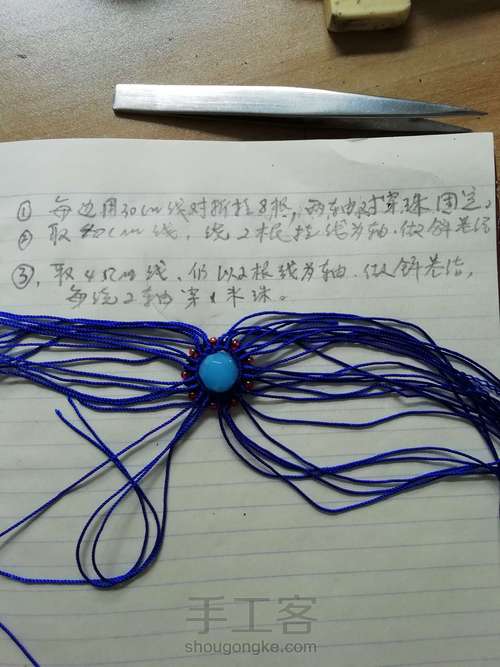 ① 每边用30cm线对折挂8根,两轴对穿珠固定。
② 取40cm线,绕2根挂线为轴.做斜卷结
③.取45cm线.仍以2根线为轴.做斜卷结,
每绕2轴穿1米珠。
手工客
shougongke.com